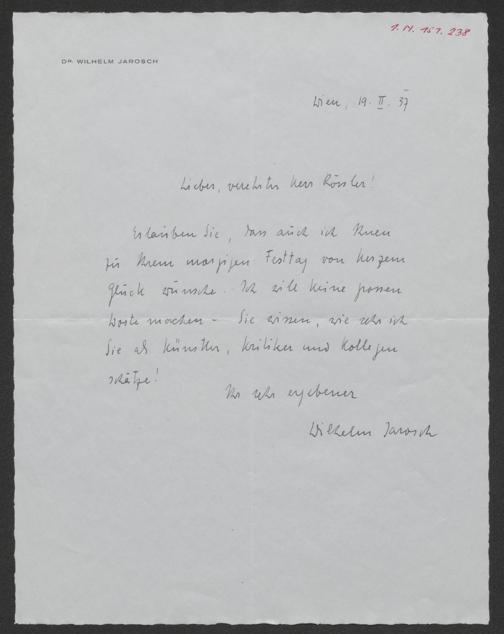 I. N. 151.238
DR. WILHELM JAROSCH
Wien, 19. II. 37
Lieber, verehrter Herr Rössler!
Erlauben Sie, dass auch ich Ihnen
zu Ihrem morgigen Festtag von Herzen
Glück wünsche. Ich will keine grossen
Worte machen – Sie wissen, wie sehr ich
Sie als Künstler, Kritiker und Kollegen
schätze!
Ihr sehr ergebener
Wilhelm Jarosch